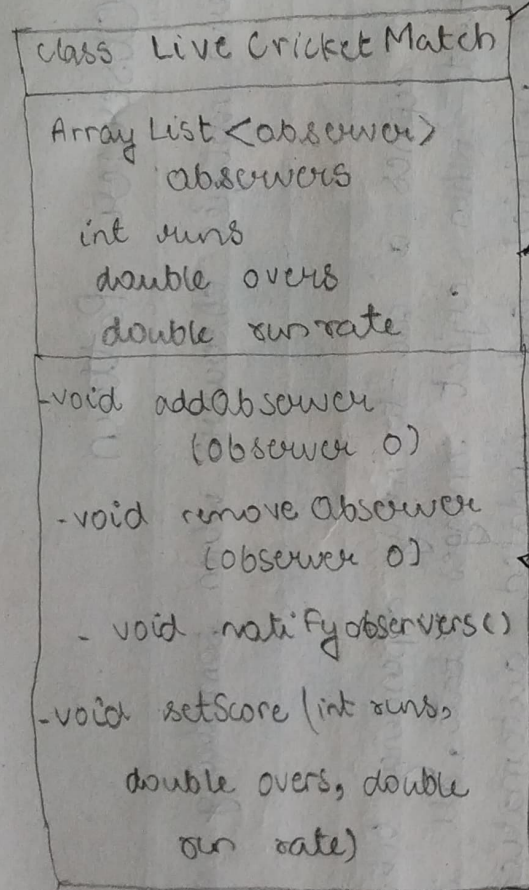 class Live Cricket Match
Array List <observer>
observers
int runs
double overs
double run rate
-void addObserver
(observer o)
-void remove Observer
(observer o)
- void notifyobservers()
-void setScore (int runs,
double overs, double
run rate)